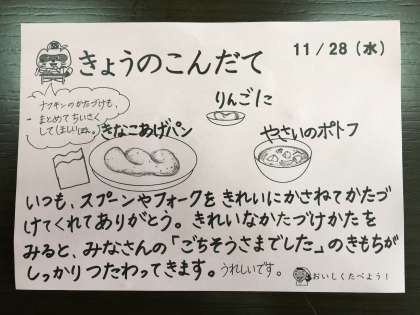 きょうのこんだて
11/28(水)
ナフキンのかたづけも、
まとめてちいさく
して(ほしい)
りんごに
きなこあげパン
やさいのポトフ
いつも、スプーンやフォークをきれいにかさねてかたづ
けてくれてありがとう。きれいなかたづけかたを
みると、みなさんの「ごちそうさまでした」のきもちが
しっかりつたわってきます。うれしいです。
おいしくたべよう!